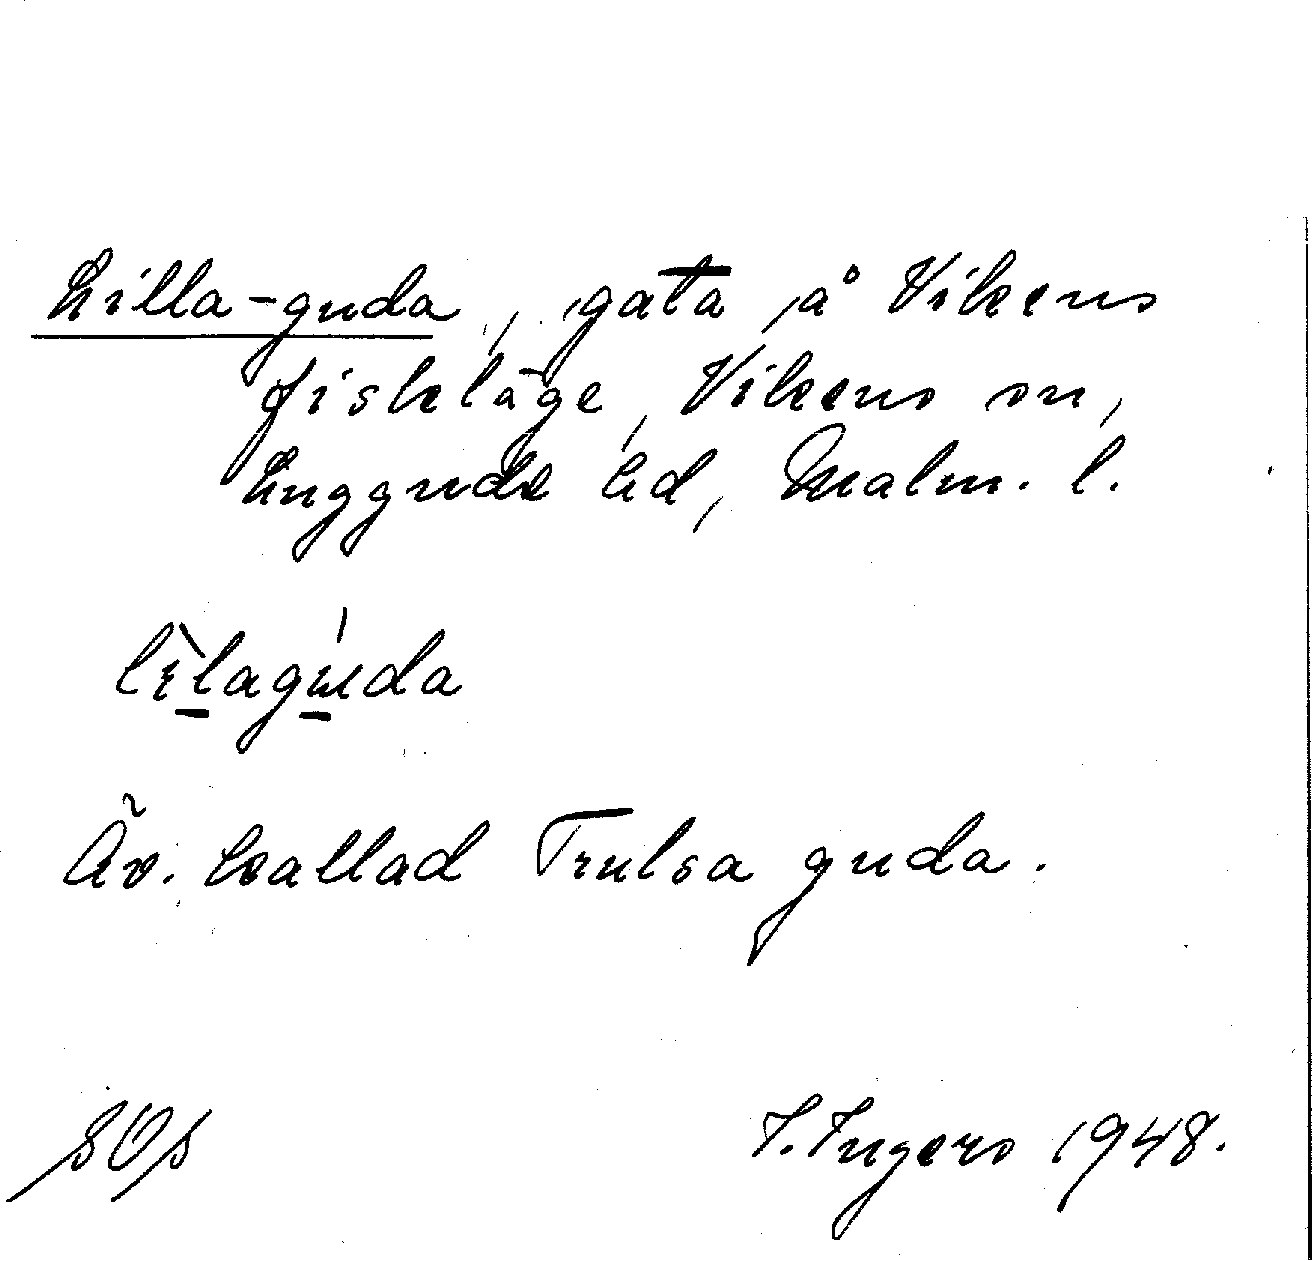 Lilla-guda, gata å Vikens
fiskläge, Vikens sn,
Luggude hd, Malm. l.
lìlagúda
Äv. kallad Trulsa guda.
SOS
I. Ingers 1948.